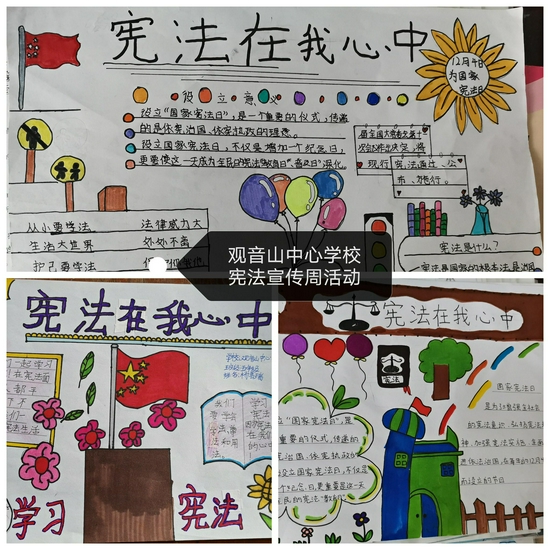 宪法在我心中
12月4日
为国家
宪法日
设立意义
设立"国家宪法日",是一个重要的仪式,传递
的是依宪治国、依宪执政的理念。
设立国家宪法日,不仅是增加一个纪念日,
更要使这一天成为全民的宪法"教育日、普及日"深化。
现行宪法通过、公
布、施行。
从小要学法
法律威力大
生活大世界
处处不离
护己要学法
宪法是什么?
宪法是国家的根本法是治国
观音山中心学校
宪法宣传周活动
宪法在我心中
一起学习
我们
要学
学法
学习
宪法
宪法在我心中
宪法
国家宪法日
立"国家宪法日",是
重要的仪式,传递的
宪治国、依宪执政的
设立国家宪法日,不仅是
个纪念日,更要使这一天
民的宪法"教育日
是为了增强全社会
的宪法意识,弘扬宪法精
神,加强宪法实施,全面
进依法治国
而设立的节日